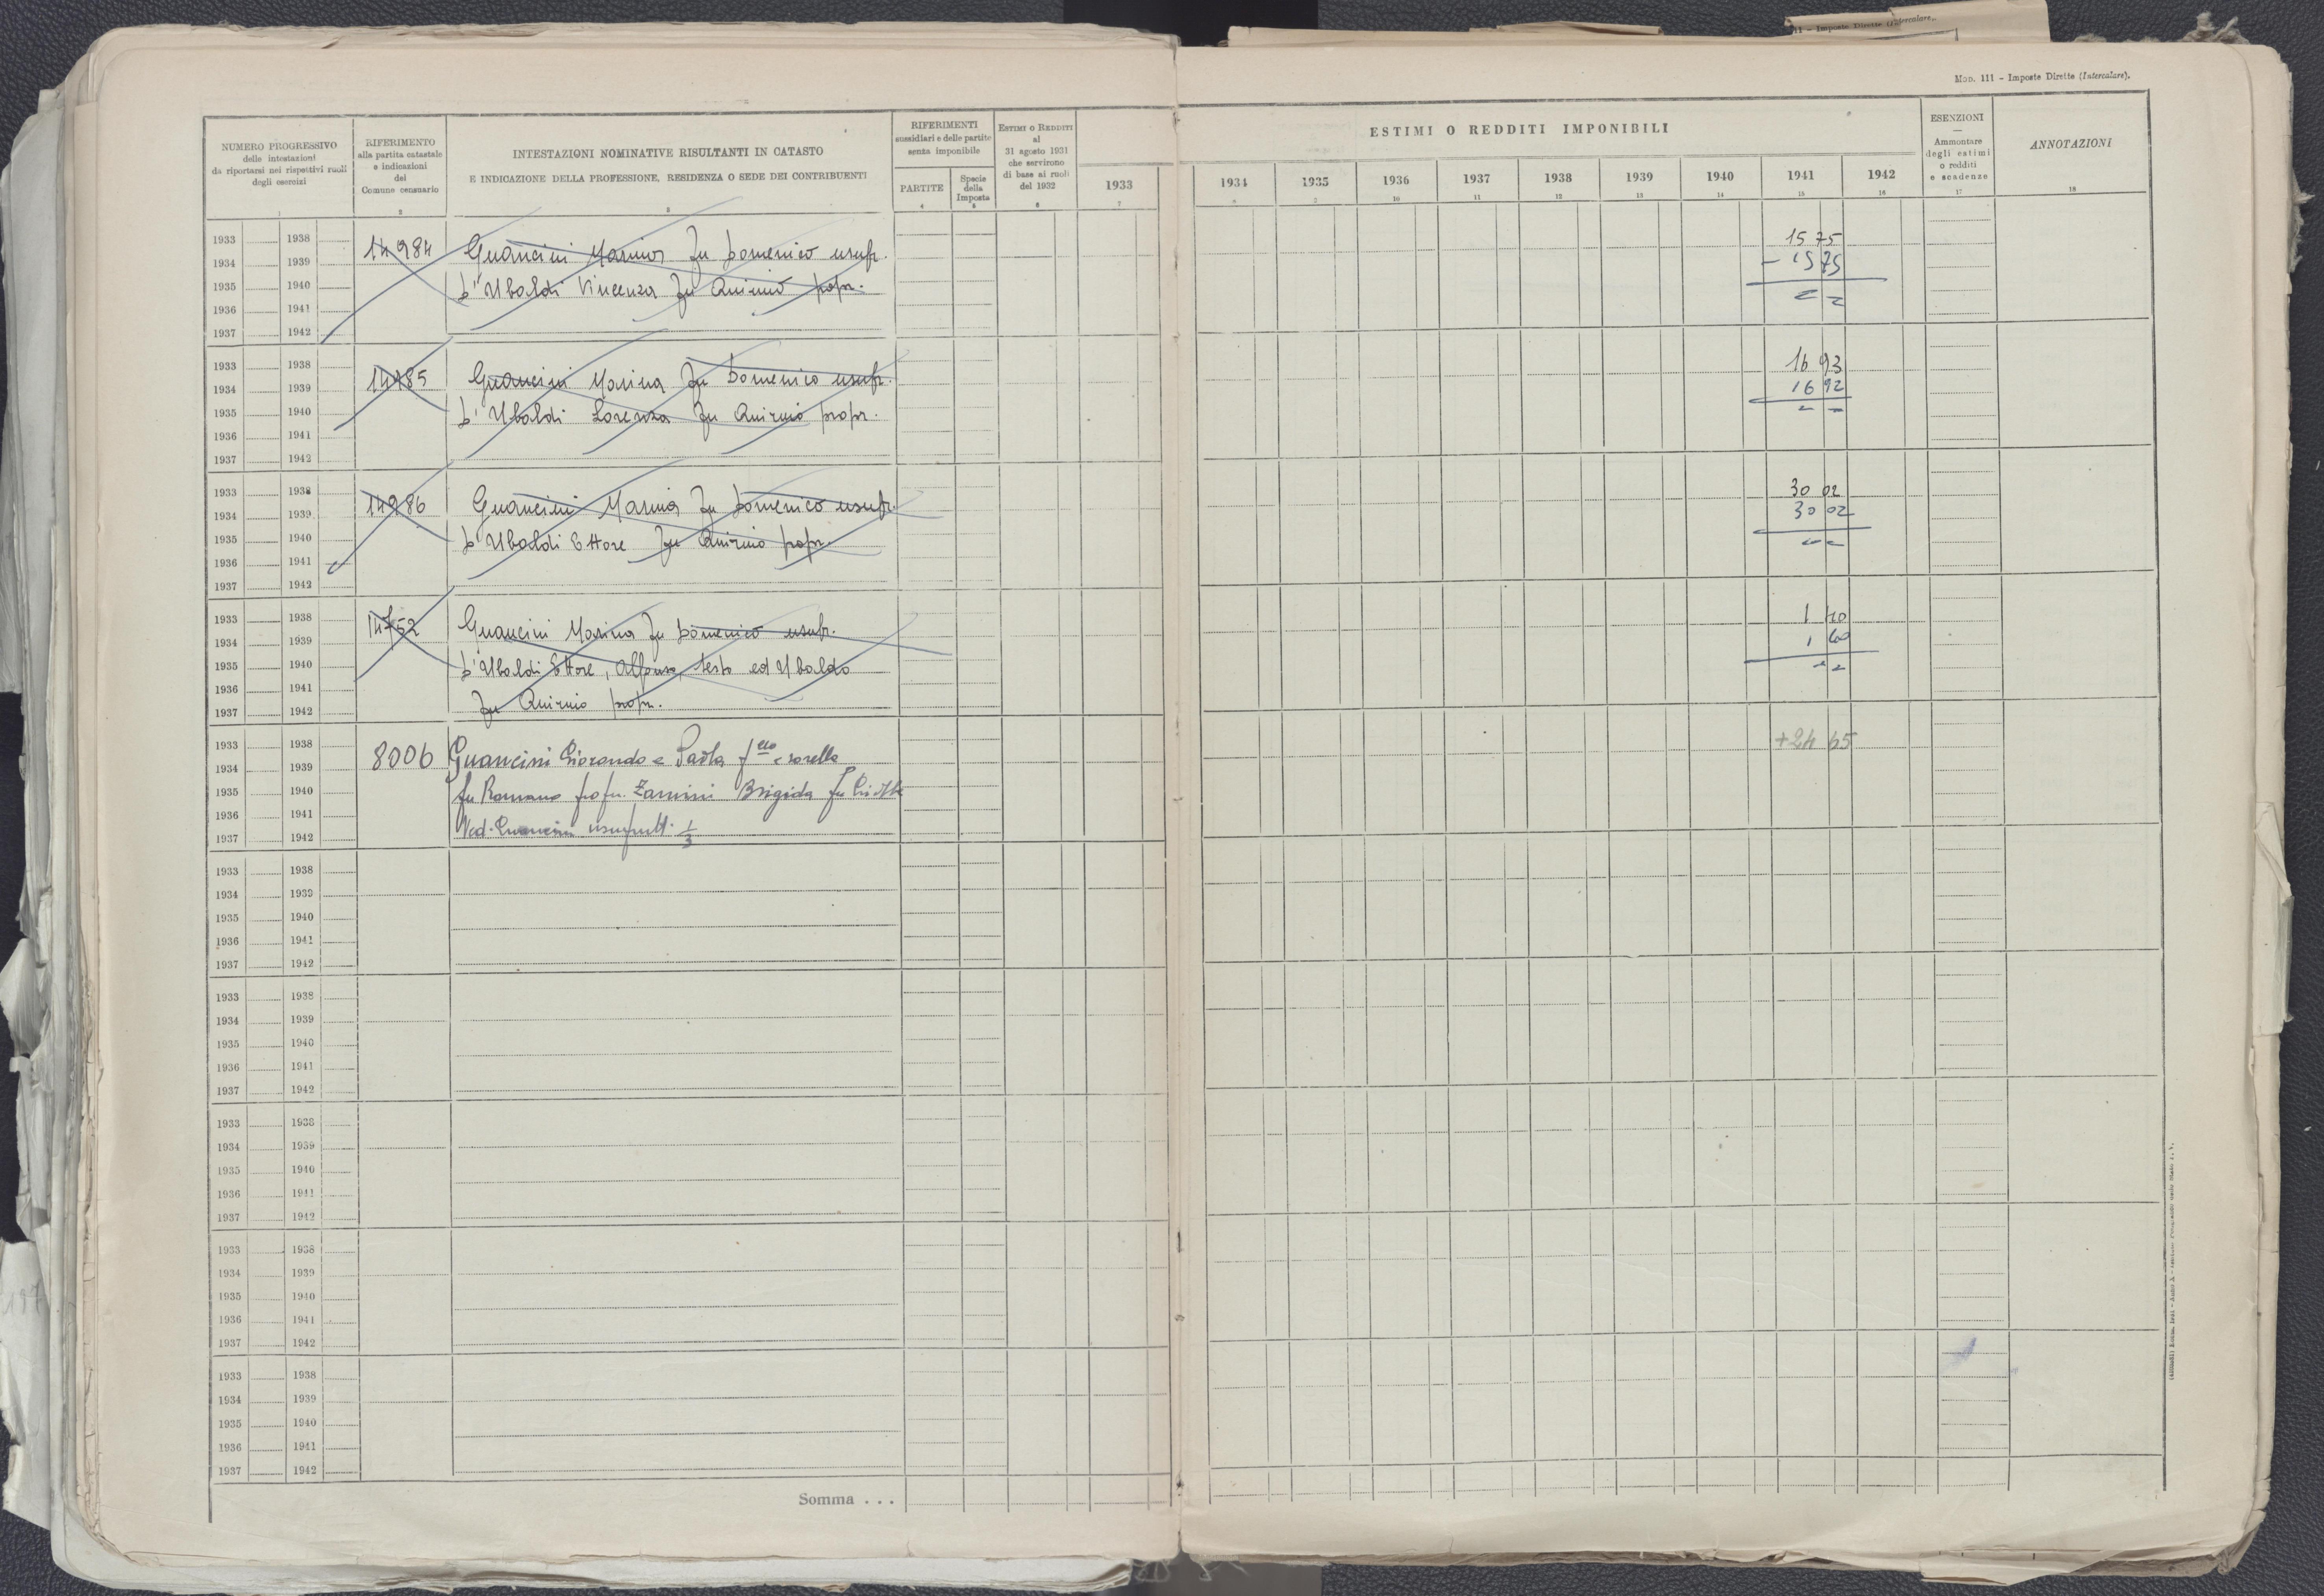 11 – Imposte Dirette (Intercalare
Mod. 111 – Imposte Dirette (Intercalare).
NUMERO PROGRESSIVO
delle intestazioni
da riportarsi nei rispettivi ruoli
degli esercizi
1
RIFERIMENTO
alla partita catastale
e indicazioni
del
Comune censuario
2
INTESTAZIONI NOMINATIVE RISULTANTI IN CATASTO
E INDICAZIONE DELLA PROFESSIONE, RESIDENZA O SEDE DEI CONTRIBUENTI
3
RIFERIMENTI
sussidiari e delle partite
senza imponibile
PARTITE
4
Specie
della
Imposta
5
ESTIMI O REDDITI
al
31 agosto 1931
che servirono
di base ai ruoli
del 1932
6
ESTIMI O REDDITI IMPONIBILI
1933 1934 1935 1936 1937 1938 1939 1940 1941 1942
7 8 9 10 11 12 13 14 15 16
ESENZIONI
—
Ammontare
degli estimi
o redditi
e scadenze
17
ANNOTAZIONI
18
1933 1938 14984 Guancini Marina fu Domenico usufr. 15 75
1934 1939 – 15 75
1935 1940 D'Ubaldi Vincenza fu Quirino propr. – –
1936 1941
1937 1942
1933 1938 Guancini Marina fu Domenico usufr. 16 93
1934 1939 14985 16 92
1935 1940 D'Ubaldi Lorenza fu Quirino propr. – –
1936 1941
1937 1942
1933 1938 14986 Guancini Marina fu Domenico usufr. 30 02
1934 1939 30 02
1935 1940 D'Ubaldi Ettore fu Quirino propr. – –
1936 1941
1937 1942
1933 1938 14752 Guancini Marina fu Domenico usufr. 1 40
1934 1939 1 40
1935 1940 D'Ubaldi Ettore, Alfonso, Sesto ed Ubaldo – –
1936 1941
1937 1942 fu Quirino propr.
1933 1938 8006 Guancini Giorando e Paola f.llo e sorella +24 65
1934 1939
1935 1940 fu Romano propr. Zannini Brigida fu
1936 1941
1937 1942 Ved. Guancini usufrutt. 1/3
1933 1938
1934 1939
1935 1940
1936 1941
1937 1942
1933 1938
1934 1939
1935 1940
1936 1941
1937 1942
1933 1938
1934 1939
1935 1940
1936 1941
1937 1942
1933 1938
1934 1939
1935 1940
1936 1941
1937 1942
1933 1938
1934 1939
1935 1940
1936 1941
1937 1942
Somma . . .